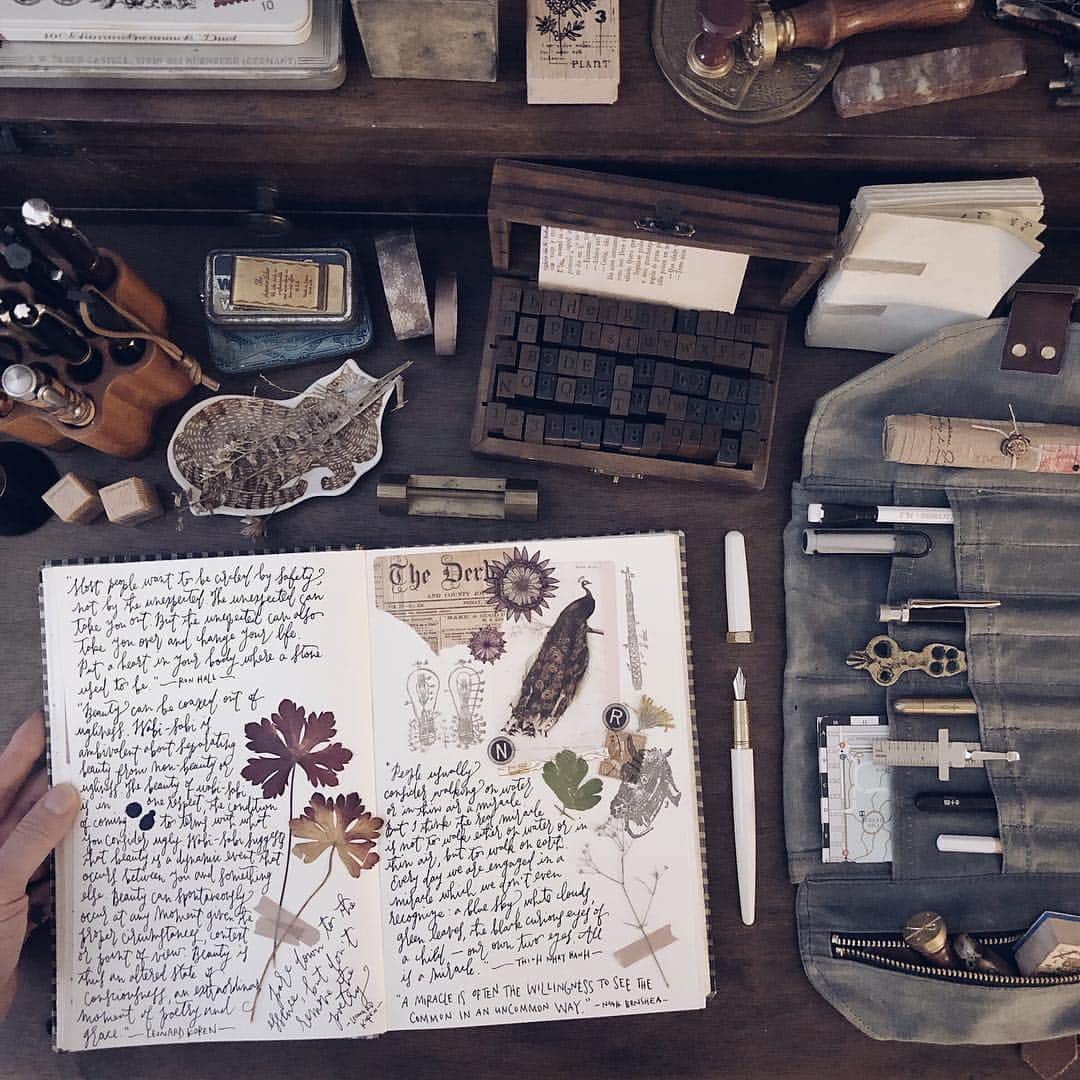 10
3
PLANT
"Most people want to be circled by safety,
not by the unexpected. The unexpected can
take you out. But the unexpected can also
take you over and change your life.
Put a heart in your body where a stone
used to be." — RON HALL —
"Beauty can be coaxed out of
ugliness. Wabi-sabi is
ambivalent about separating
beauty from non-beauty or
ugliness. The beauty of wabi-sabi
is in one respect, the condition
of coming to terms with what
you consider ugly. Wabi-sabi suggests
that beauty is a dynamic event that
occurs between you and something
else. Beauty can spontaneously
occur at any moment given the
proper circumstances, context
or point of view. Beauty is
thus an altered state of
consciousness, an extraordinary
moment of poetry and
grace." — LEONARD KOREN —
pare down to the
essence, but don't
remove the
poetry
The Derb
AND COUNTY
N
R
"People usually
consider walking on water
or in thin air a miracle.
But I think the real miracle
is not to walk either on water or in
thin air, but to walk on earth.
Every day we are engaged in a
miracle which we don't even
recognize: a blue sky, white clouds,
green leaves, the black curious eyes of
a child, — our own two eyes. All
is a miracle." — THICH NHAT HANH —
"A MIRACLE IS OFTEN THE WILLINGNESS TO SEE THE
COMMON IN AN UNCOMMON WAY." — NOAH BENSHEA —